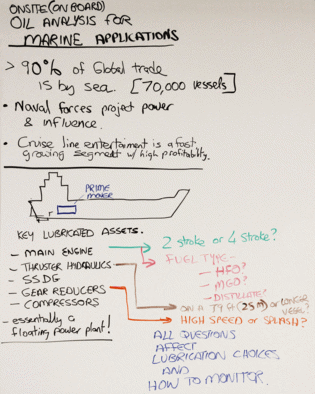 ONSITE (ON BOARD)
OIL ANALYSIS FOR
MARINE APPLICATIONS
> 90% of Global trade
is by sea. [70,000 vessels]
• Naval forces project power
& influence.
• Cruise line entertaiment is a fast
growing segment w/ high profitability.
PRIME
MOVER
KEY LUBRICATED ASSETS.
— MAIN ENGINE
— THRUSTER HYDRAULICS
— SSDG
— GEAR REDUCERS
— COMPRESSORS
— essentially a
floating power plant!
2 stroke or 4 Stroke?
FUEL TYPE —
— HFO?
— MGO?
— DISTILLATE?
ON A 79 ft (25M) or LONGER
VESSEL?
HIGH SPEED or SPLASH?
ALL QUESTIONS
AFFECT
LUBRICATION CHOICES
AND
HOW TO MONITOR.